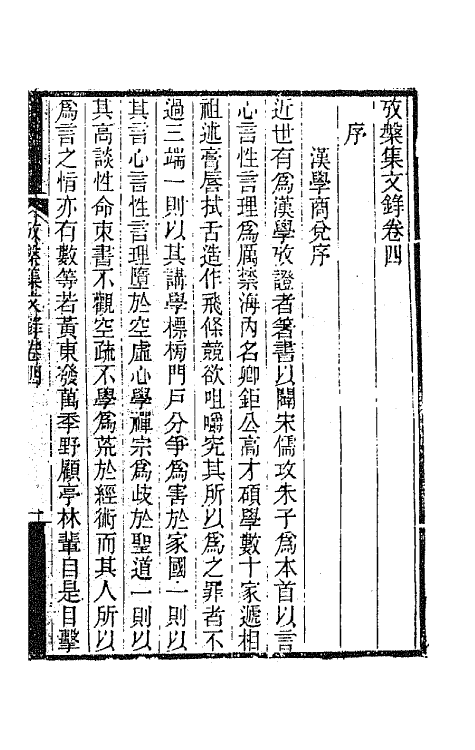 攷槃集文錄卷四
序
漢學商兌序
近世有爲漢學攷證者箸書以闢宋儒攻朱子爲本首以言
心言性言理爲厲禁海內名卿鉅公高才碩學數十家遞相
祖述膏脣拭舌造作飛條競欲咀嚼究其所以爲之罪者不
過三端一則以其講學標榜門戶分爭爲害於家國一則以
其言心言性言理墮於空虛心學禪宗爲歧於聖道一則以
其高談性命束書不觀空疏不學爲荒於經術而其人所以
爲言之情亦有數等若黃東發萬季野顧亭林輩自是目擊
攷槃集文錄卷四
一